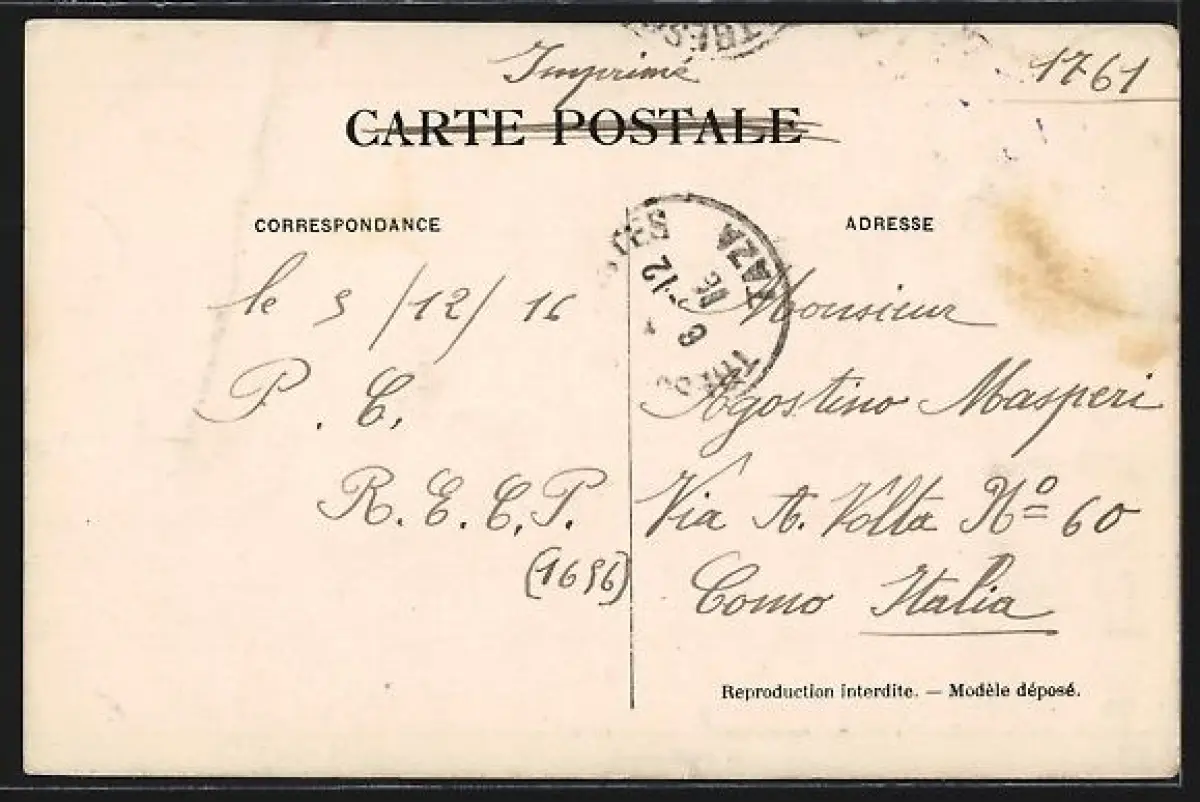 Imprimé
1761
CARTE POSTALE
CORRESPONDANCE
le 5/12/16
P. C.
R. E. C. P.
(1696)
ADRESSE
Monsieur
Agostino Masperi
Via A. Volta Nº 60
Como Italia
TAZA
8-12
16
Reproduction interdite. — Modèle déposé.